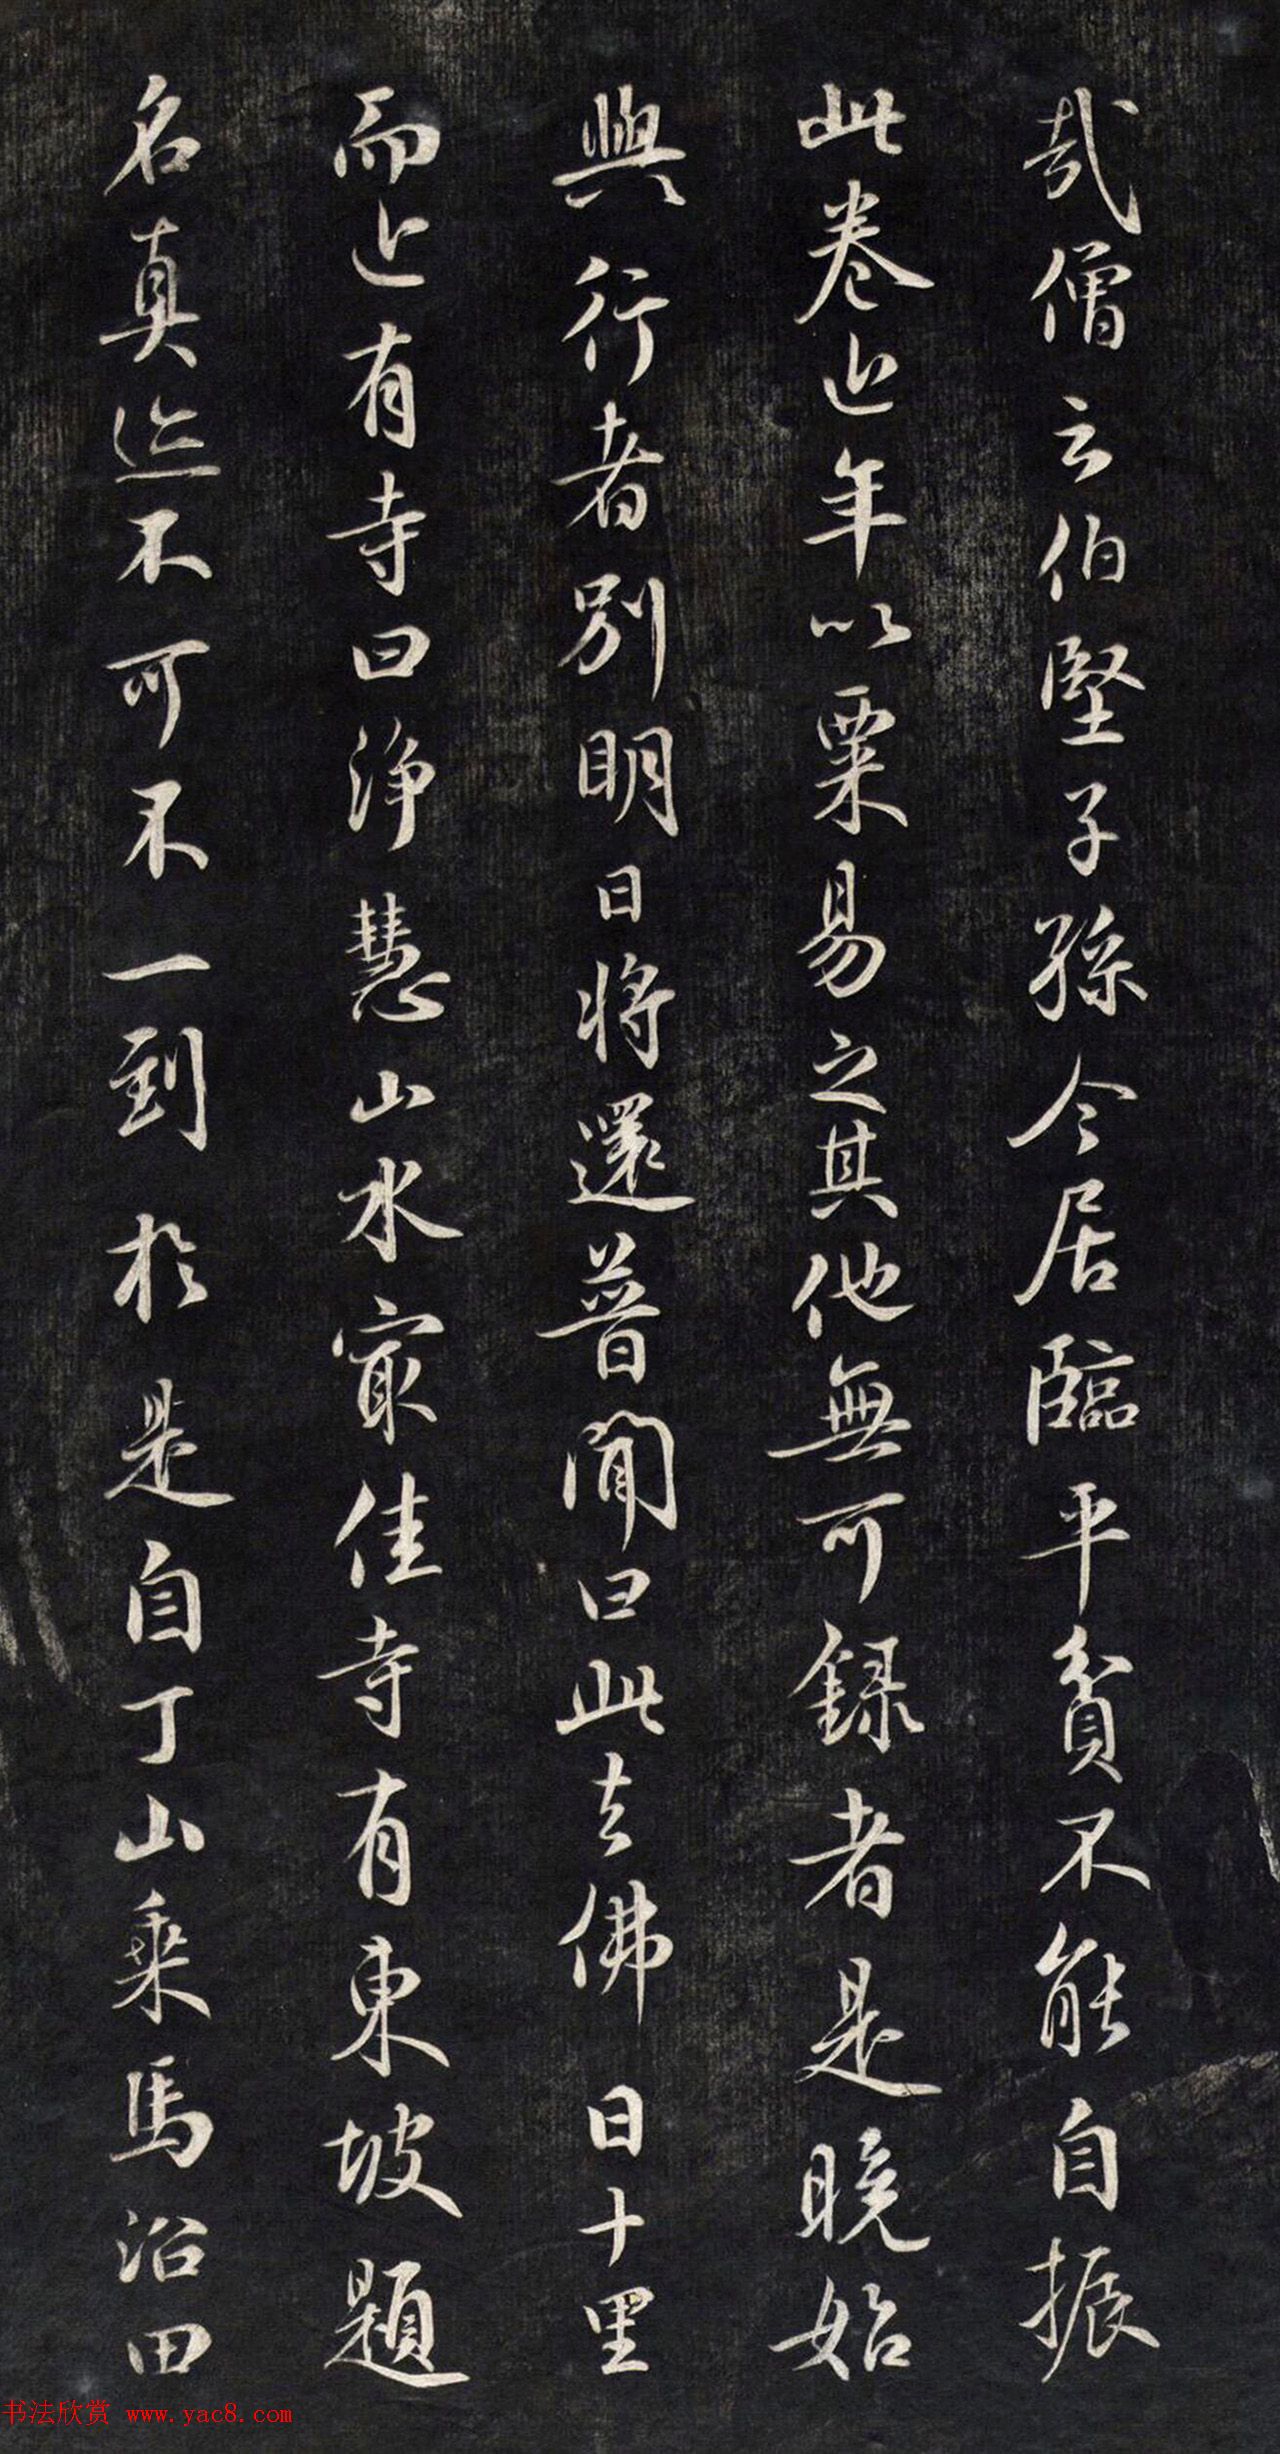 哉僧云伯堅子孫今居臨平貧不能自振
此卷近年以粟易之其他無可録者是晚始
與行者別明日將還普聞曰此去佛日十里
而近有寺曰淨慧山水最佳寺有東坡題
名真迹不可不一到於是自丁山乘馬沿田
书法欣赏 www.yac8.com